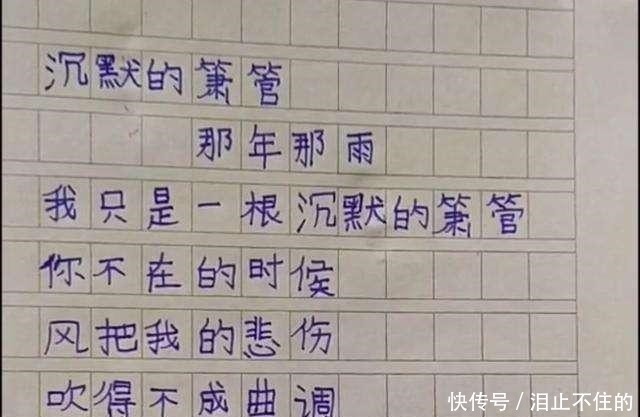 沉默的箫管
那年那雨
我只是一根沉默的箫管
你不在的时候
风把我的悲伤
吹得不成曲调
快传号 / 泪止不住的